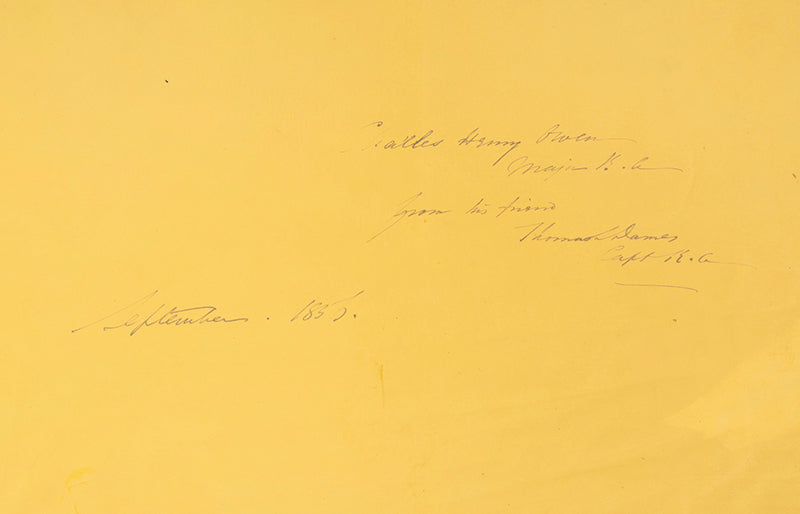 Charles Henry Owen
Major R.A
from his friend
Thomas L Dames
Capt R.A
September.